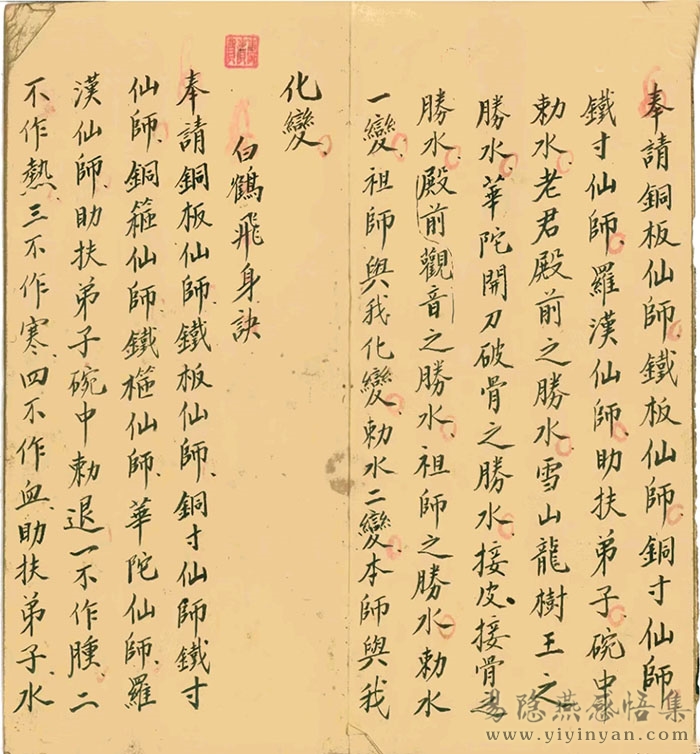 奉請銅板仙師鐵板仙師銅寸仙師
鐵寸仙師羅漢仙師助扶弟子碗中
勅水老君殿前之勝水雪山龍樹王之
勝水華陀開刀破骨之勝水接皮接骨之
勝水殿前觀音之勝水祖師之勝水勅水
一變祖師與我化變勅水二變本師與我
化變
白鶴飛身訣
奉請銅板仙師鐵板仙師銅寸仙師鐵寸
仙師銅箍仙師鐵箍仙師華陀仙師羅
漢仙師助扶弟子碗中勅退一不作腫二
不作熱三不作寒四不作血助扶弟子水
易隐燕感悟集
www.yiyinyan.com